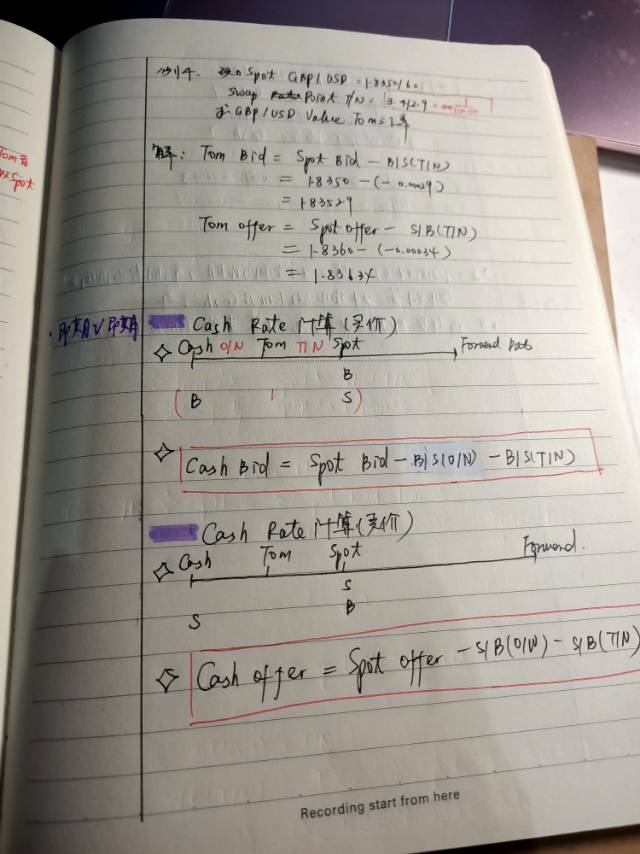 例4. Spot GBP/USD = 1.8350/60
Swap Point T/N = 3.4/2.9
求 GBP/USD Value Tom 之率
Tom 与
Spot
解: Tom Bid = Spot Bid - B/S(T/N)
= 1.8350 - (-0.00029)
= 1.83529
Tom offer = Spot offer - S/B(T/N)
= 1.8360 - (-0.00034)
= 1.83634
Cash Rate 计算(买价)
Cash O/N Tom T/N Spot Forward Date
B
( B S )
Cash Bid = Spot Bid - B/S(O/N) - B/S(T/N)
Cash Rate 计算(卖价)
Cash Tom Spot Forward.
S
B
S
Cash offer = Spot offer - S/B(O/N) - S/B(T/N)
Recording start from here